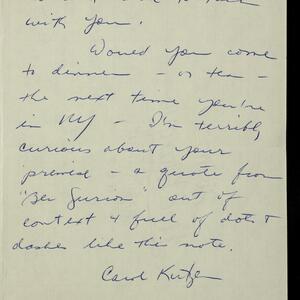 with you.
Would you come
to dinner – or tea –
the next time you're
in NY – I'm terribly
curious about your
premise – a quote from
"Ben Gurion" out of
context & full of dots &
dashes like this note.
Carol